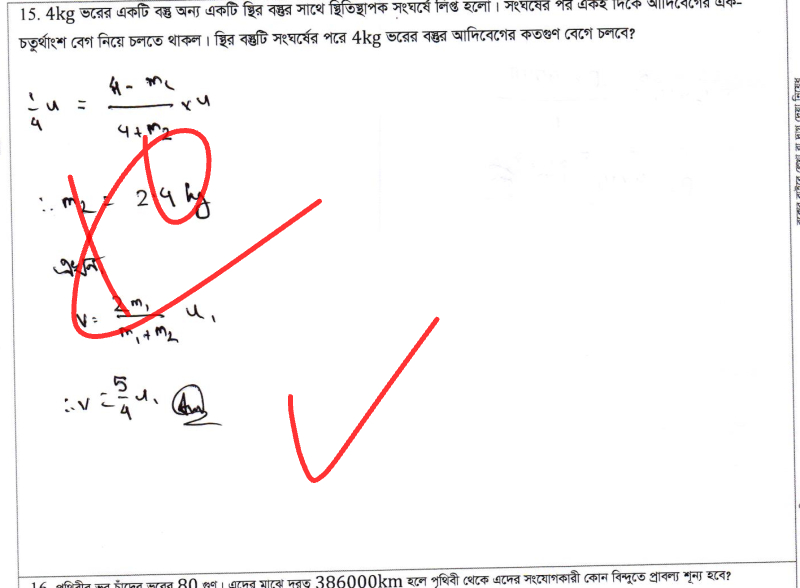 15. 4kg ভরের একটি বস্তু অন্য একটি স্থির বস্তুর সাথে স্থিতিস্থাপক সংঘর্ষে লিপ্ত হলো। সংঘর্ষের পর একই দিকে আদিবেগের এক-
চতুর্থাংশ বেগ নিয়ে চলতে থাকল। স্থির বস্তুটি সংঘর্ষের পরে 4kg ভরের বস্তুর আদিবেগের কতগুণ বেগে চলবে?
1/4 u = (4 - m₂)/(4 + m₂) × u
∴ m₂ = 2.4 kg
এখন,
v = 2m₁/(m₁ + m₂) u₁
∴ v = 5/4 u₁ Ans
16. পৃথিবীর ভর চাঁদের ভরের 80 গুণ। এদের মাঝে দূরত্ব 386000km হলে পৃথিবী থেকে এদের সংযোগকারী কোন বিন্দুতে প্রাবল্য শূন্য হবে?